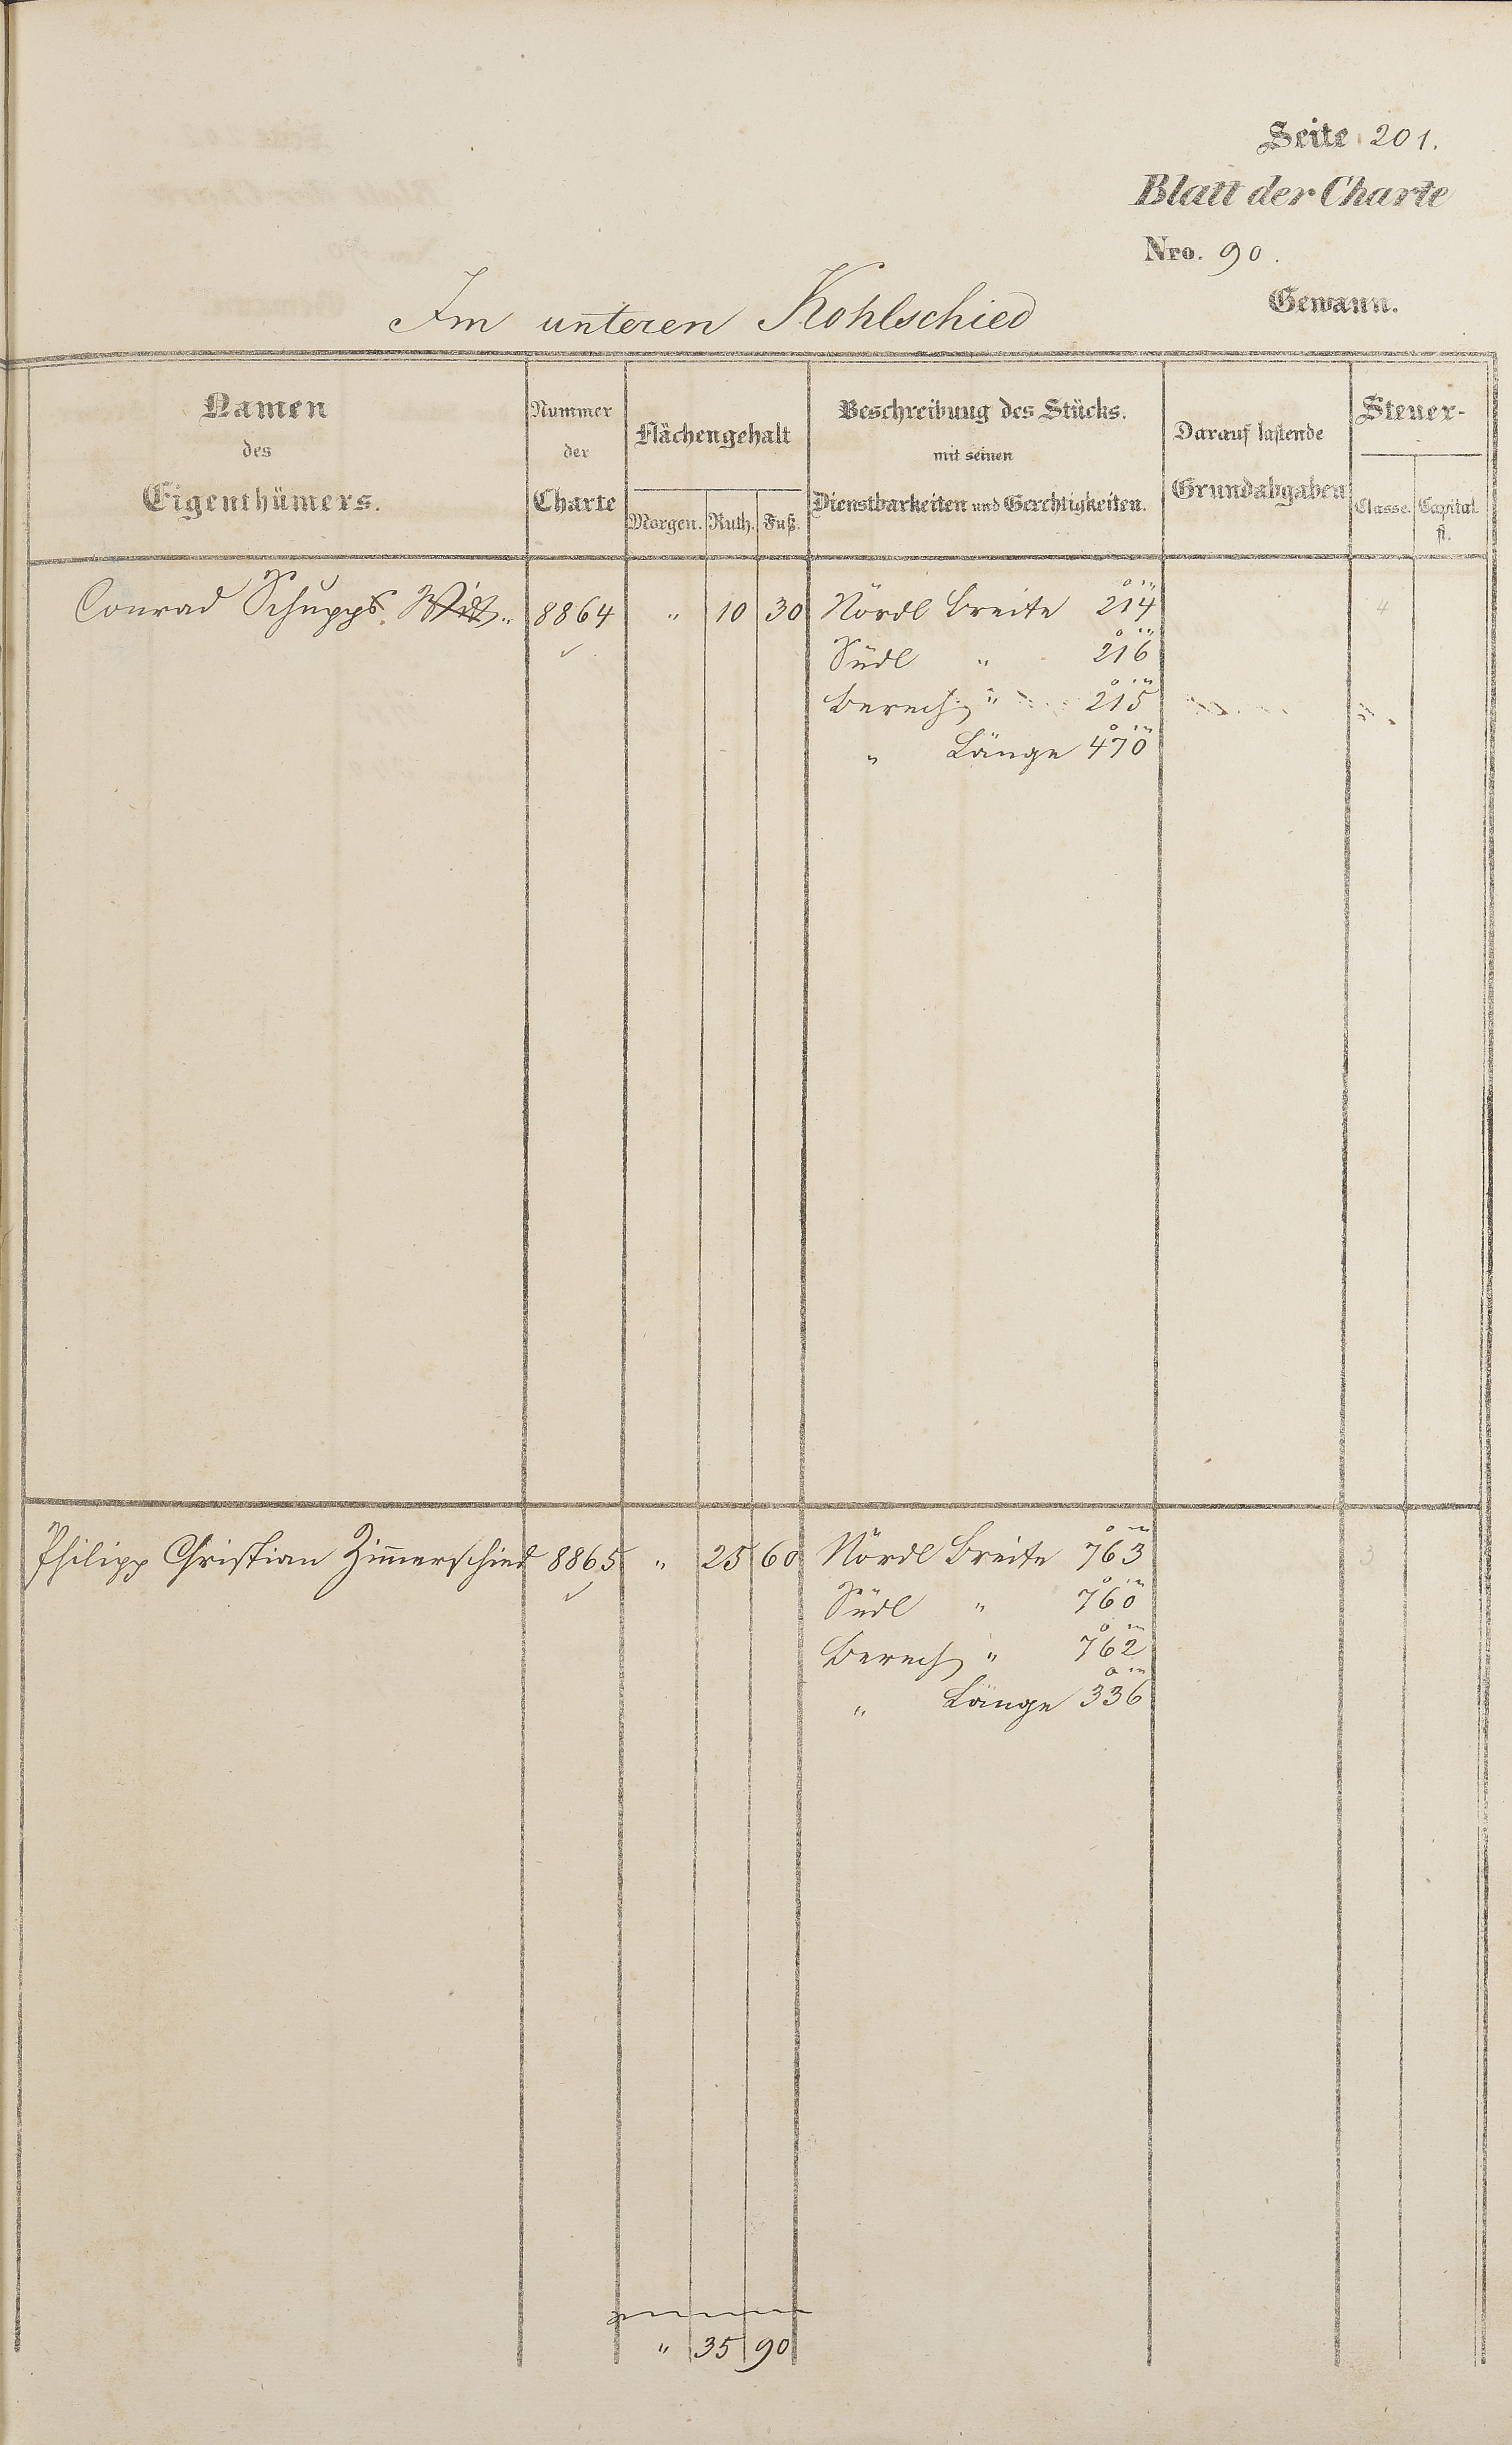 Seite 201.
Blatt der Charte
Nro. 90.
Gewann.
Im unteren Kohlschied
Namen des Eigenthümers.
Nummer der Charte
Flächengehalt
Morgen. Ruth. Fuß.
Beschreibung des Stücks.
mit seinen
Dienstbarkeiten und Gerechtigkeiten.
Darauf lastende
Grundabgaben
Steuer-
Classe. Capital.
fl.
Conrad Schupps Witt. 8864 " 10 30 Nördl Breite 214 4
Südl " 216
Berech " 215
" Länge 470
Philipp Christian Zimmerschied 8865 " 25 60 Nördl Breite 763 3
Südl " 760
Berech " 762
" Länge 336
" 35 90